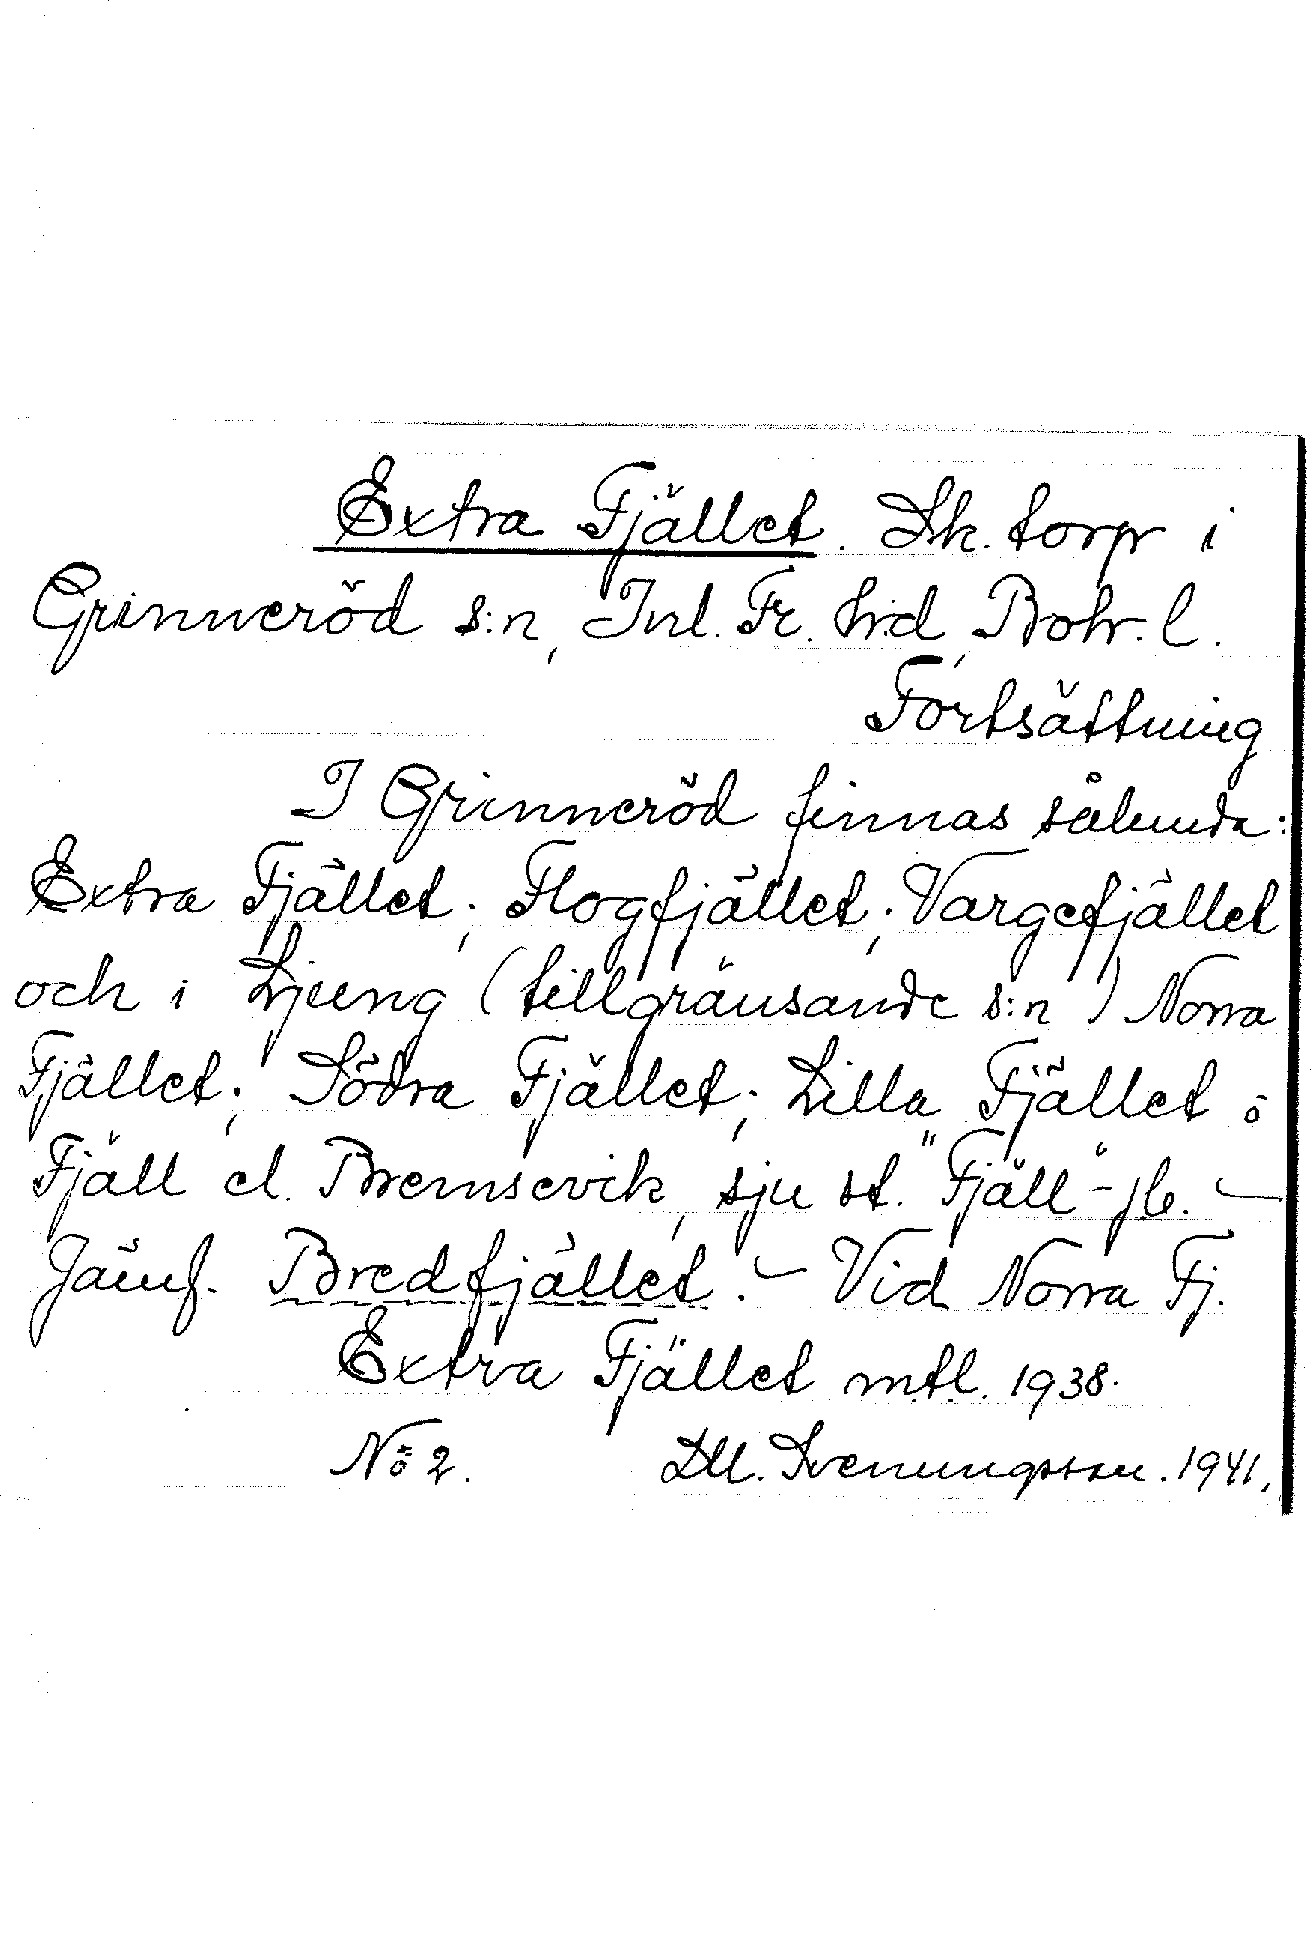 Extra Fjället. Sk. torp i
Grinneröd s:n, Inl. Fr. h:d, Boh. l.
Fortsättning
I Grinneröd finnas sålunda:
Extra Fjället; Flogfjället; Vargefjället
och i Ljung (tillgränsande s:n) Norra
Fjället; Södra Fjället; Lilla Fjället o
Fjäll el. Bremsevik, sju st. "Fjäll"- –
Jämf. Bredfjället. – Vid Norra Fj.
Extra Fjället mtl. 1938.
No 2. Svenungsson. 1941.